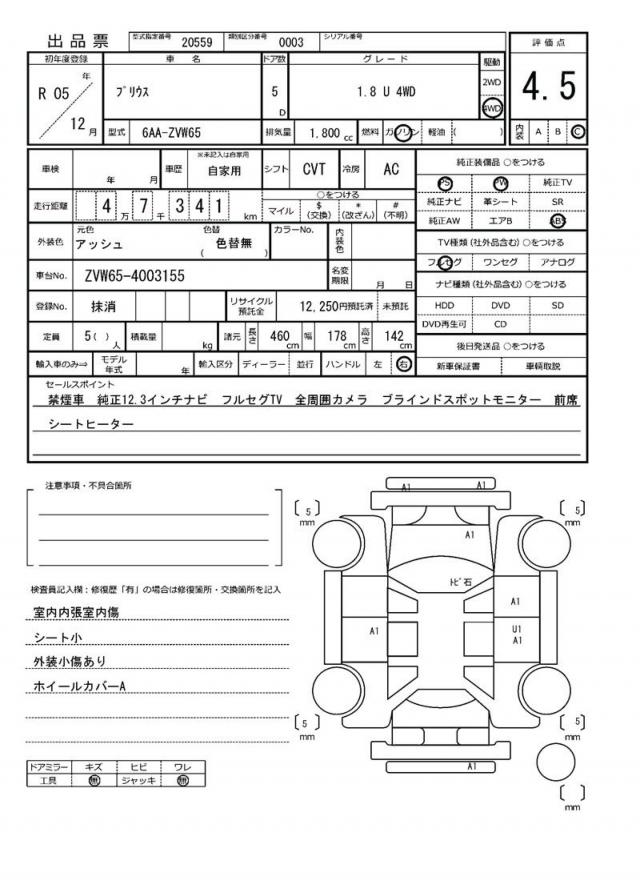 出品票 型式指定番号 20559 類別区分番号 0003 シリアル番号
初年度登録 車 名 ドア数 グレード 駆動 評価点
R 05 年 12 月 プリウス 5 D 1.8 U 4WD 2WD 4WD 4.5
型式 6AA-ZVW65 排気量 1,800 cc 燃料 ガソリン 軽油 ( ) 内装 A B C
車検 年 月 車歴 ※未記入は自家用 自家用 シフト CVT 冷房 AC 純正装備品 ○をつける
PS PW 純正TV
走行距離 4 万 7 千 3 4 1 km ○をつける 純正ナビ 革シート SR
マイル $ (交換) * (改ざん) # (不明) 純正AW エアB ABS
外装色 元色 アッシュ 色替 ( 色替無 ) カラーNo. 内装色 TV種類(社外品含む) ○をつける
フルセグ ワンセグ アナログ
車台No. ZVW65-4003155 名変期限 月 日 ナビ種類(社外品含む) ○をつける
登録No. 抹消 リサイクル預託金 12,250円預託済 未預託 HDD DVD SD
DVD再生可 CD
定員 5( ) 人 積載量 kg 諸元 長さ 460 cm 幅 178 cm 高さ 142 cm 後日発送品 ○をつける
輸入車のみ⇒ モデル年式 年 輸入区分 ディーラー 並行 ハンドル 左 右 新車保証書 車輌取説
セールスポイント
禁煙車 純正12.3インチナビ フルセグTV 全周囲カメラ ブラインドスポットモニター 前席
シートヒーター
注意事項・不具合箇所
検査員記入欄：修復歴「有」の場合は修復箇所・交換箇所を記入
室内内張室内傷
シート小
外装小傷あり
ホイールカバーA
ドアミラー キズ ヒビ ワレ
工具 無 ジャッキ 無
A1 A1
[ 5 ] mm [ 5 ] mm
A1
トビ石
A1
A1 U1
A1
[ 5 ] mm [ 5 ] mm
A1
[ ] mm